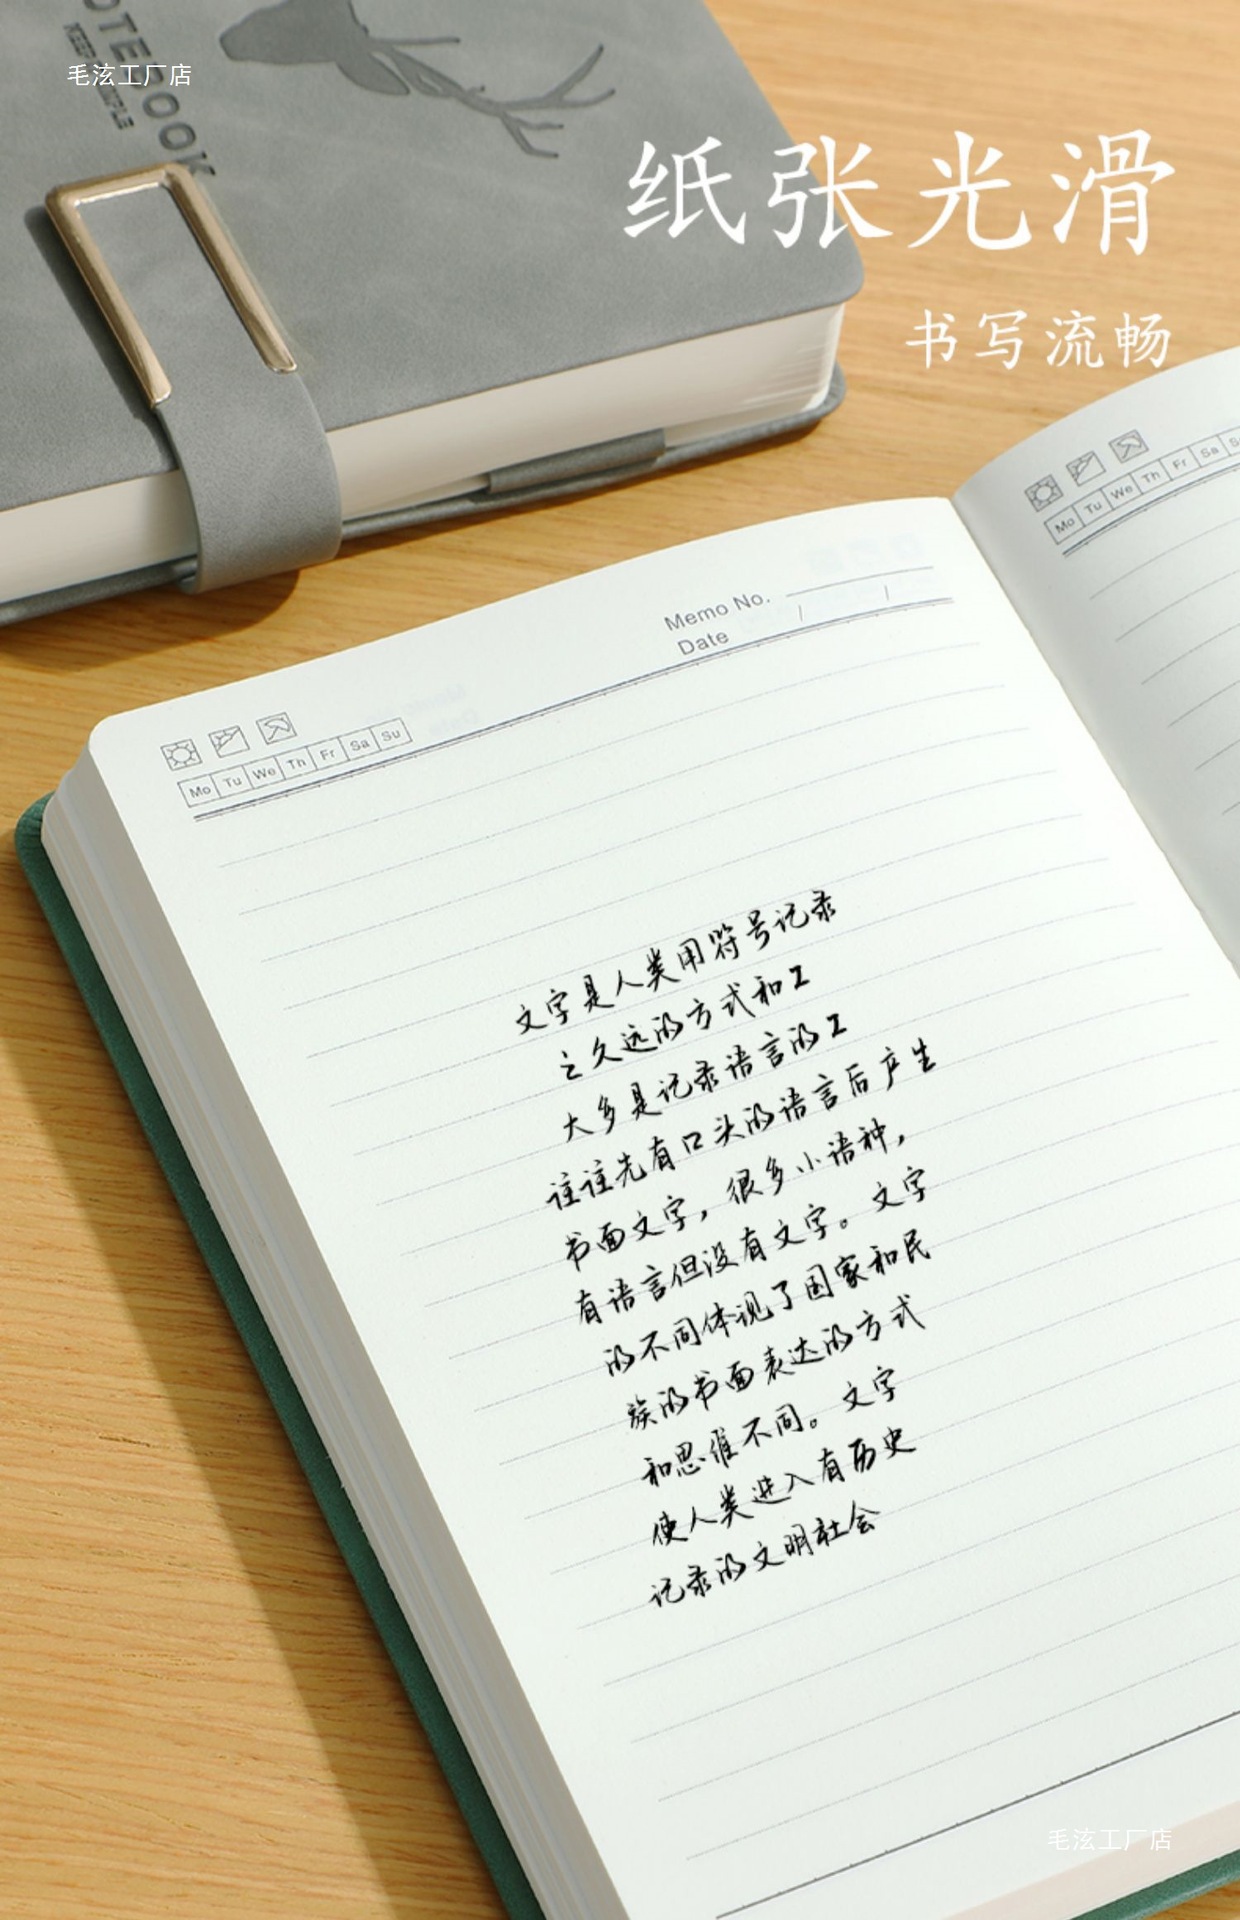 毛泫工厂店
NOTEBOOK
纸张光滑
书写流畅
Mo Tu We Th Fr Sa
Memo No.
Date / /
Mo Tu We Th Fr Sa Su
文字是人类用符号记录
之久远的方式和工
大多是记录语言的工
往往先有口头的语言后产生
书面文字，很多小语种，
有语言但没有文字。文字
的不同体现了国家和民
族的书面表达的方式
和思维不同。文字
使人类进入有历史
记录的文明社会
毛泫工厂店